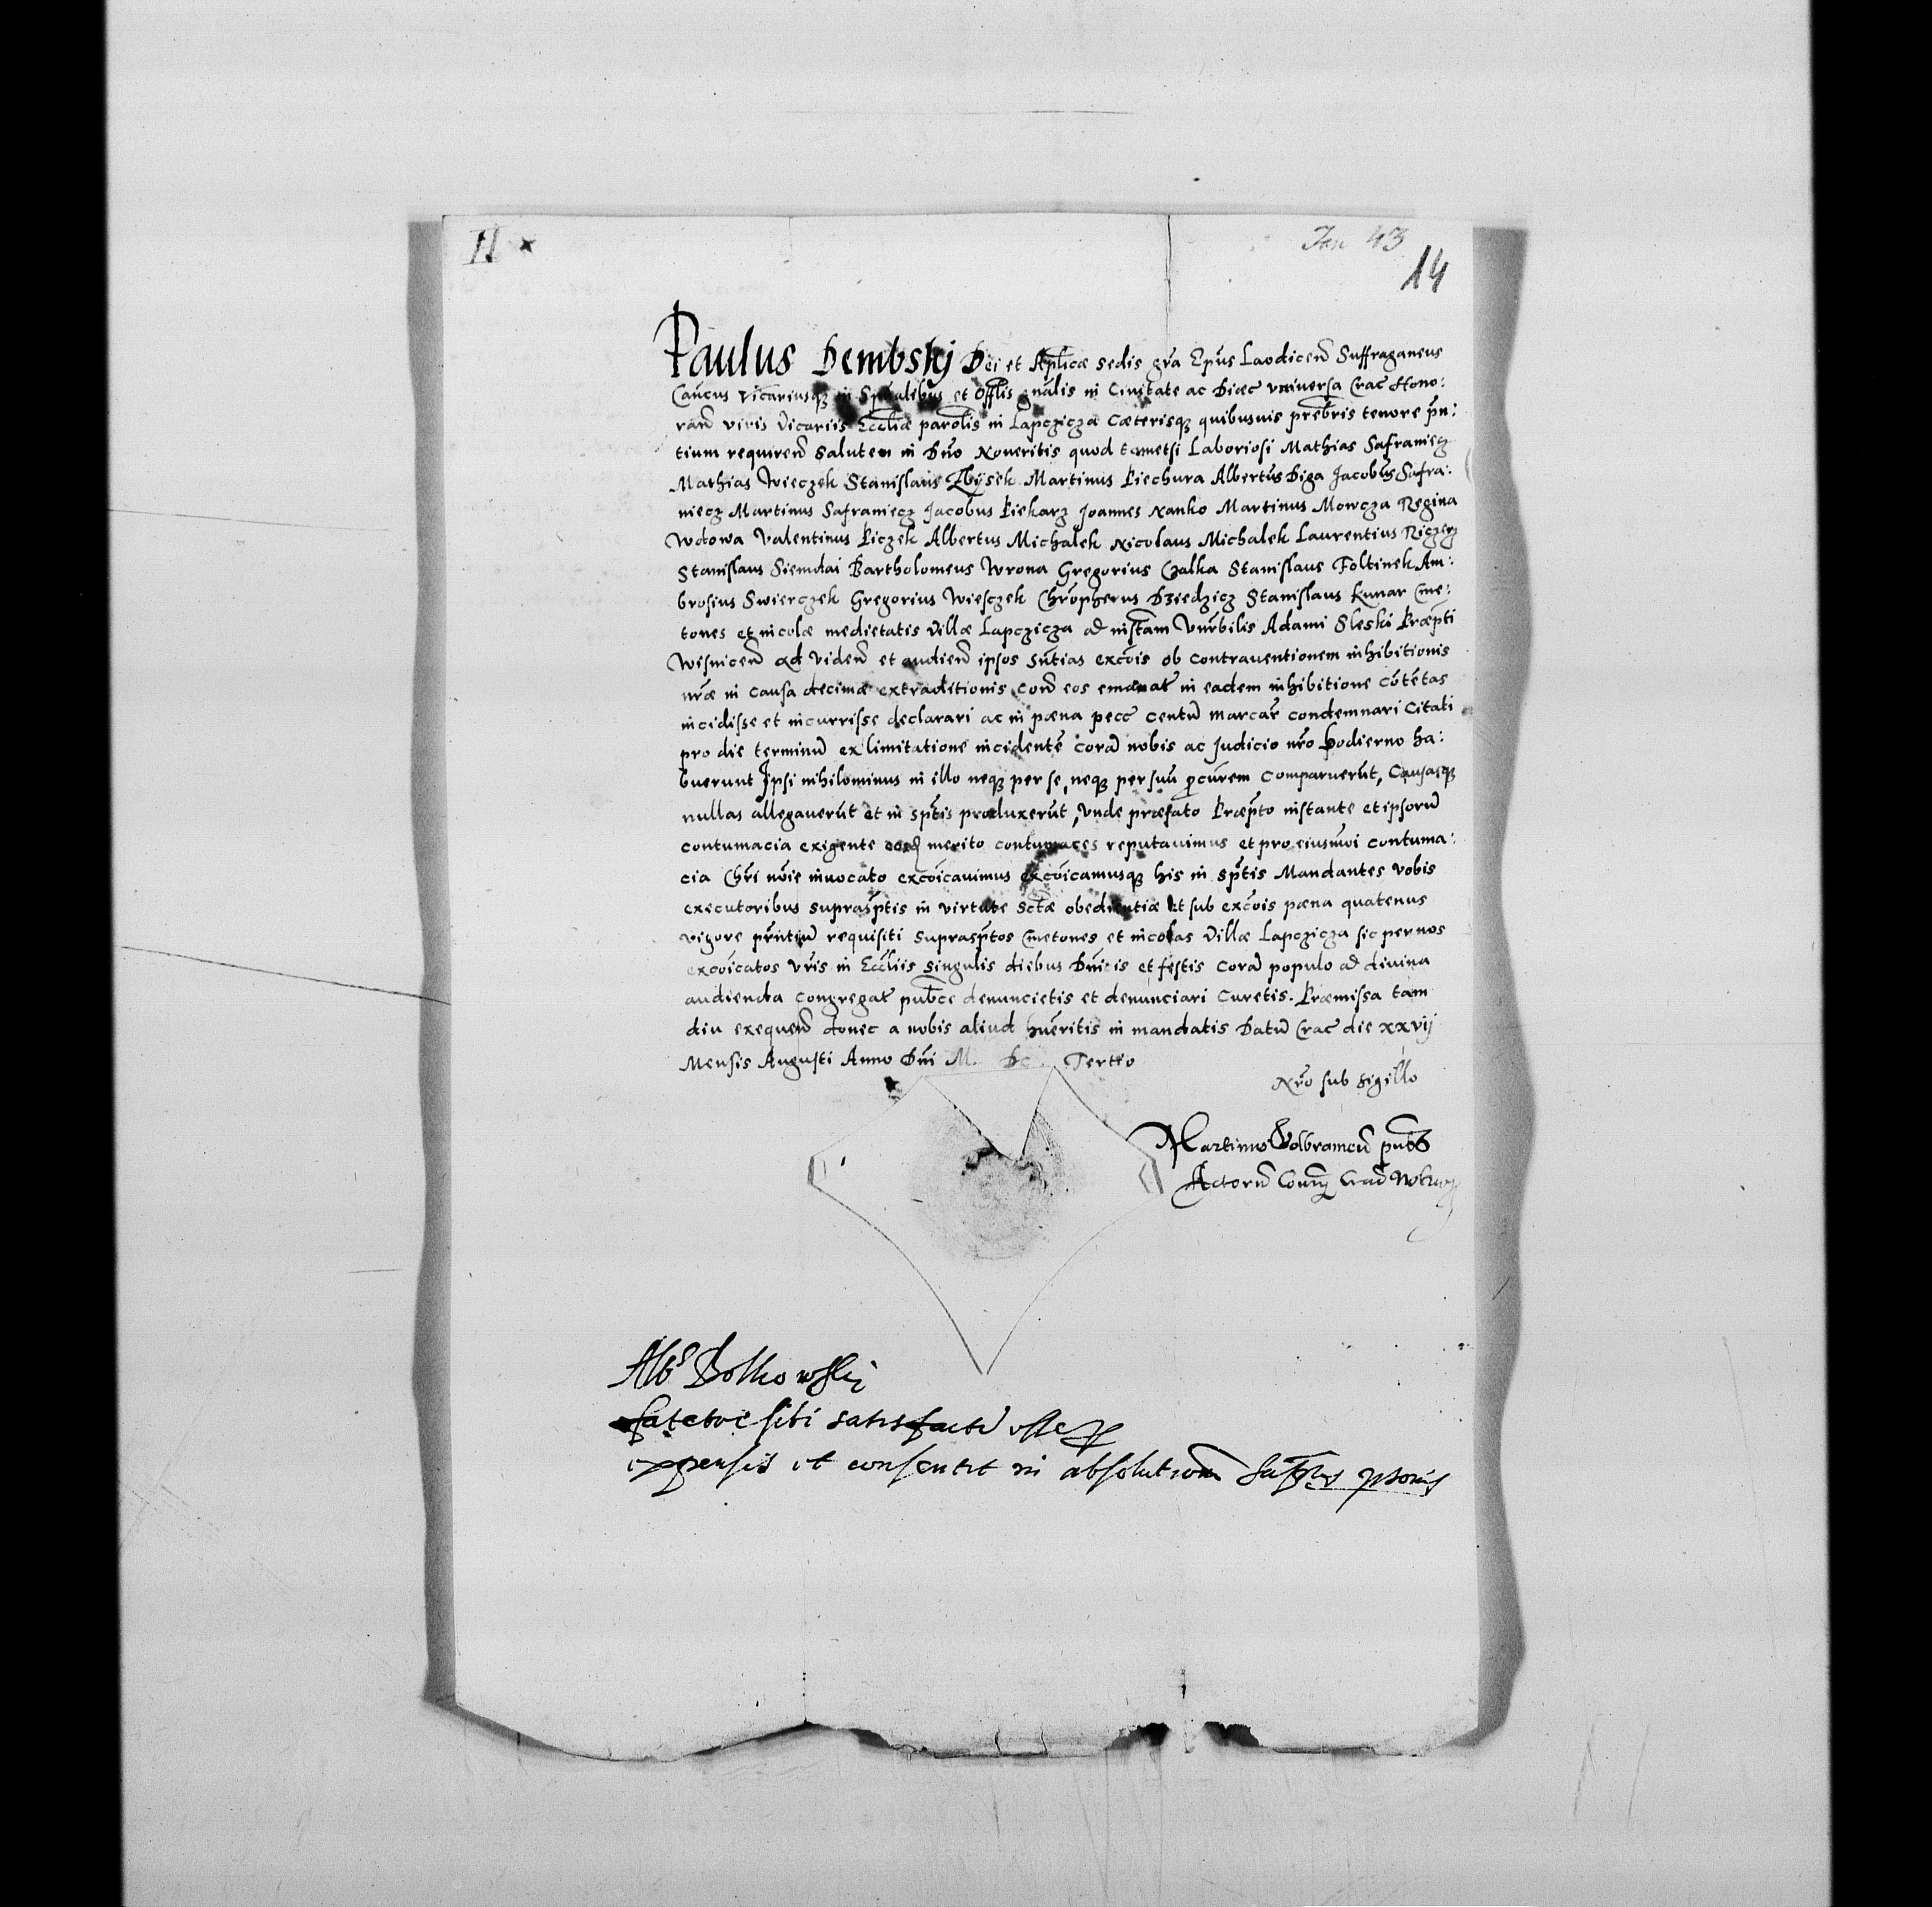 II x
Jan 43
14
Paulus Dembskj Dei et Aplicæ sedis gra Epus Laodiceñ Suffraganeus
Cancus Vicariusq in Spualibus et Offlis gnalis in Civitate ac Diæc vniversa Crac Hono:
rand viris Vicariis Eccliæ parolis in Lapczicza Cæterisq quibusvis prebris tenore pn:
tium requirend Salutem in Dno Noveritis quod tametsi Laboriosi Mathias Safraniecz
Mathias Wieczek Stanislaus Zbysek Martinus Piechura Albertus Diga Jacobus Safra:
niecz Martinus Safraniecz Jacobus Piekarz Joannes Nanko Martinus Mowcza Regina
Wdowa Valentinus Piczek Albertus Michalek Nicolaus Michalek Laurentius Riczerz
Stanislaus Siemdai Bartholomeus Wrona Gregorius Czalka Stanislaus Foltinek Am:
brosius Swierczek Gregorius Wiesczek Chropherus Dziedzicz Stanislaus Kunar Cme:
tones et incolæ medietatis Villæ Lapczicza ad instam Vnrbilis Adami Sleski Præpti
Wisniceñ ad vidend et audiend ipsos Sntias excois ob contraventionem inhibitionis
nræ in causa decimæ extraditionis cord eos emanat in eadem inhibitione cotetas
incidisse et incurrisse declarari ac in pæna pecc centu marcar condemnari Citati
pro die terminu ex limitatione incidente cora nobis ac Judicio nro hodierno ha:
buerunt Ipsi nihilominus in illo neq per se, neq per suu pcurem comparuerut, Causasq
nullas allegaverut et in sptis produxerut, Vnde præfato Præpto instante et ipsoru
contumacia exigente eosd merito contumaces reputavimus et pro eiusmoi contuma:
cia Chri noie invocato excoicavimus excoicamusq his in sptis Mandantes vobis
executoribus suprasptis in virtute sctæ obedientiæ et sub excois pæna quatenus
vigore prntiu requisiti suprasptos Cmetones et incolas Villæ Lapczicza sic per nos
excoicatos vris in Eccliis singulis diebus Dnicis et festis Cora populo ad divina
audienda congregat publce denuncietis et denunciari curetis. Præmissa tam
diu exequend donec a nobis aliud hueritis in mandatis Datu Crac die xxvij
Mensis Augusti Anno Dni M. Dc. Tertio
Nro sub sigillo
Martinus Wolbramceñ pubs
Actoru Crac Notarius
Albs Bolkowski
fatetur sibi satisfactu esse p
expensis et consentit in absolutionem